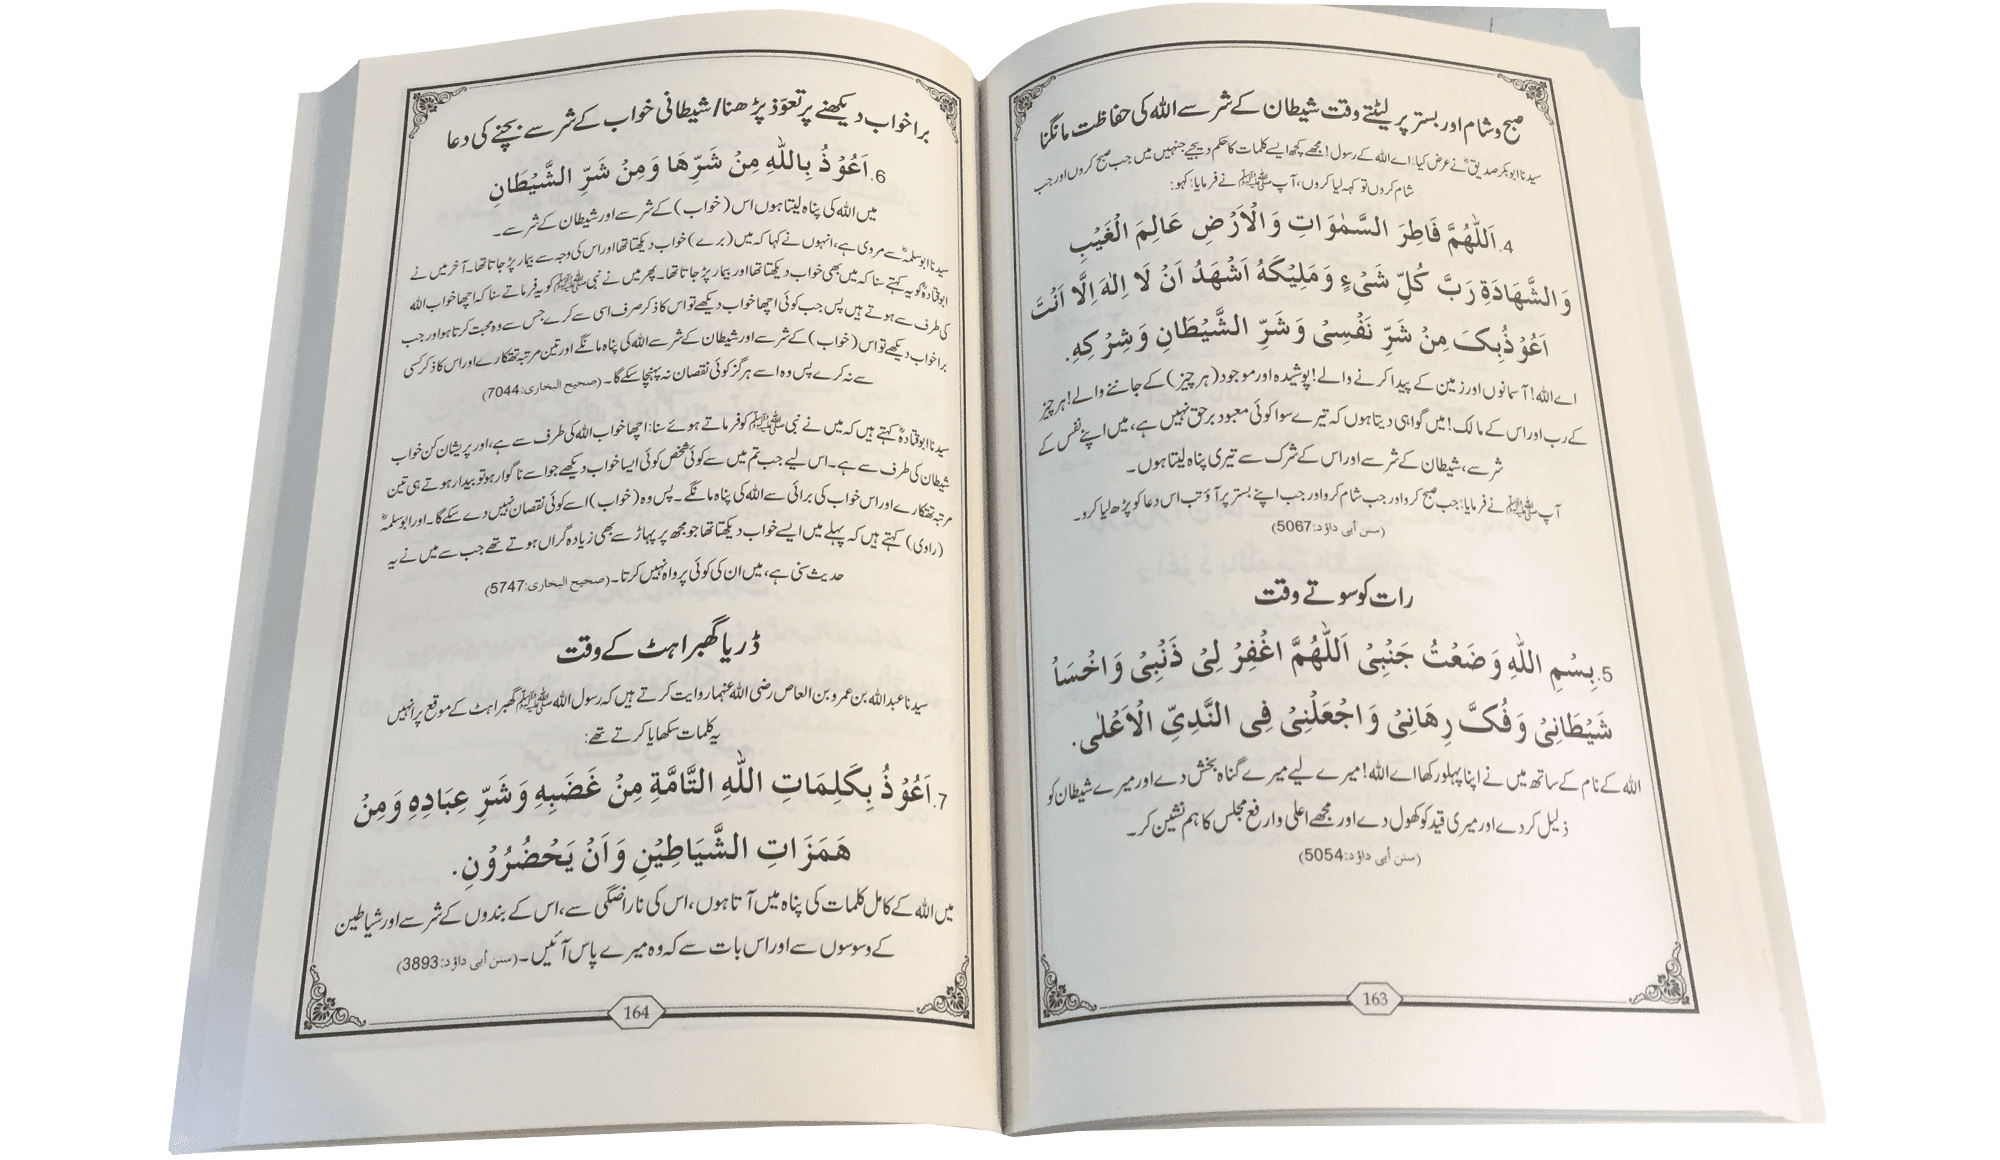 صبح و شام اور بستر پر لیٹتے وقت شیطان کے شر سے اللہ کی حفاظت مانگنا
سیدنا ابوبکر صدیقؓ نے عرض کیا: اے اللہ کے رسول! مجھے کچھ ایسے کلمات کا حکم دیجیے جنہیں میں جب صبح کروں اور جب
شام کروں تو کہہ لیا کروں، آپ ﷺ نے فرمایا: کہو:
4. اَللّٰهُمَّ فَاطِرَ السَّمٰوَاتِ وَالْاَرْضِ عَالِمَ الْغَيْبِ
وَالشَّهَادَةِ رَبَّ كُلِّ شَیْءٍ وَمَلِيْكَهُ اَشْهَدُ اَنْ لَا اِلٰهَ اِلَّا اَنْتَ
اَعُوْذُبِكَ مِنْ شَرِّ نَفْسِیْ وَشَرِّ الشَّيْطَانِ وَشِرْكِهِ.
اے اللہ! آسمانوں اور زمین کے پیدا کرنے والے! پوشیدہ اور موجود (ہر چیز) کے جاننے والے! ہر چیز
کے رب اور اس کے مالک! میں گواہی دیتا ہوں کہ تیرے سوا کوئی معبود برحق نہیں ہے، میں اپنے نفس کے
شر سے، شیطان کے شر سے اور اس کے شرک سے تیری پناہ لیتا ہوں۔
آپ ﷺ نے فرمایا: جب صبح کرو اور جب شام کرو اور جب اپنے بستر پر آؤ تب اس دعا کو پڑھ لیا کرو۔
(سنن أبی داؤد:5067)
رات کو سوتے وقت
5. بِسْمِ اللّٰهِ وَضَعْتُ جَنْبِیْ اَللّٰهُمَّ اغْفِرْ لِیْ ذَنْبِیْ وَاخْسَاْ
شَيْطَانِیْ وَفُكَّ رِهَانِیْ وَاجْعَلْنِیْ فِی النَّدِیِّ الْاَعْلٰی.
اللہ کے نام کے ساتھ میں نے اپنا پہلو رکھا اے اللہ! میرے لیے میرے گناہ بخش دے اور میرے شیطان کو
ذلیل کر دے اور میری قید کو کھول دے اور مجھے اعلی وارفع مجلس کا ہم نشین کر۔
(سنن أبی داؤد:5054)
163
برا خواب دیکھنے پر تعوّذ پڑھنا/شیطانی خواب کے شر سے بچنے کی دعا
6. اَعُوْذُ بِاللّٰهِ مِنْ شَرِّهَا وَمِنْ شَرِّ الشَّيْطَانِ
میں اللہ کی پناہ لیتا ہوں اس (خواب) کے شر سے اور شیطان کے شر سے۔
سیدنا ابوسلمہؒ سے مروی ہے، انہوں نے کہا کہ میں (برے) خواب دیکھتا تھا اور اس کی وجہ سے بیمار پڑ جاتا تھا۔ آخر میں نے
ابوقتادہؓ کو یہ کہتے سنا کہ میں بھی خواب دیکھتا تھا اور بیمار پڑ جاتا تھا۔ پھر میں نے نبی ﷺ کو یہ فرماتے سنا کہ اچھا خواب اللہ
کی طرف سے ہوتے ہیں پس جب کوئی اچھا خواب دیکھے تو اس کا ذکر صرف اسی سے کرے جس سے وہ محبت کرتا ہو اور جب
برا خواب دیکھے تو اس (خواب) کے شر سے اور شیطان کے شر سے اللہ کی پناہ مانگے اور تین مرتبہ تھتکارے اور اس کا ذکر کسی
سے نہ کرے پس وہ اسے ہرگز کوئی نقصان نہ پہنچا سکے گا۔ (صحیح البخاری:7044)
سیدنا ابوقتادہؓ کہتے ہیں کہ میں نے نبی ﷺ کو فرماتے ہوئے سنا: اچھا خواب اللہ کی طرف سے ہے، اور پریشان کن خواب
شیطان کی طرف سے ہے۔ اس لیے جب تم میں سے کوئی شخص کوئی ایسا خواب دیکھے جو اسے ناگوار ہو تو بیدار ہوتے ہی تین
مرتبہ تھتکارے اور اس خواب کی برائی سے اللہ کی پناہ مانگے۔ پس وہ (خواب) اسے کوئی نقصان نہیں دے سکے گا۔ اور ابوسلمہؒ
(راوی) کہتے ہیں کہ پہلے میں ایسے خواب دیکھتا تھا جو مجھ پر پہاڑ سے بھی زیادہ گراں ہوتے تھے جب سے میں نے یہ
حدیث سنی ہے، میں ان کی کوئی پرواہ نہیں کرتا۔ (صحیح البخاری:5747)
ڈر یا گھبراہٹ کے وقت
سیدنا عبداللہ بن عمرو بن العاص رضی اللہ عنہما روایت کرتے ہیں کہ رسول اللہ ﷺ گھبراہٹ کے موقع پر انہیں
یہ کلمات سکھایا کرتے تھے:
7. اَعُوْذُ بِكَلِمَاتِ اللّٰهِ التَّامَّةِ مِنْ غَضَبِهِ وَشَرِّ عِبَادِهِ وَمِنْ
هَمَزَاتِ الشَّيَاطِيْنِ وَاَنْ يَحْضُرُوْنِ.
میں اللہ کے کامل کلمات کی پناہ میں آتا ہوں، اس کی ناراضگی سے، اس کے بندوں کے شر سے اور شیاطین
کے وسوسوں سے اور اس بات سے کہ وہ میرے پاس آئیں۔ (سنن أبی داؤد:3893)
164